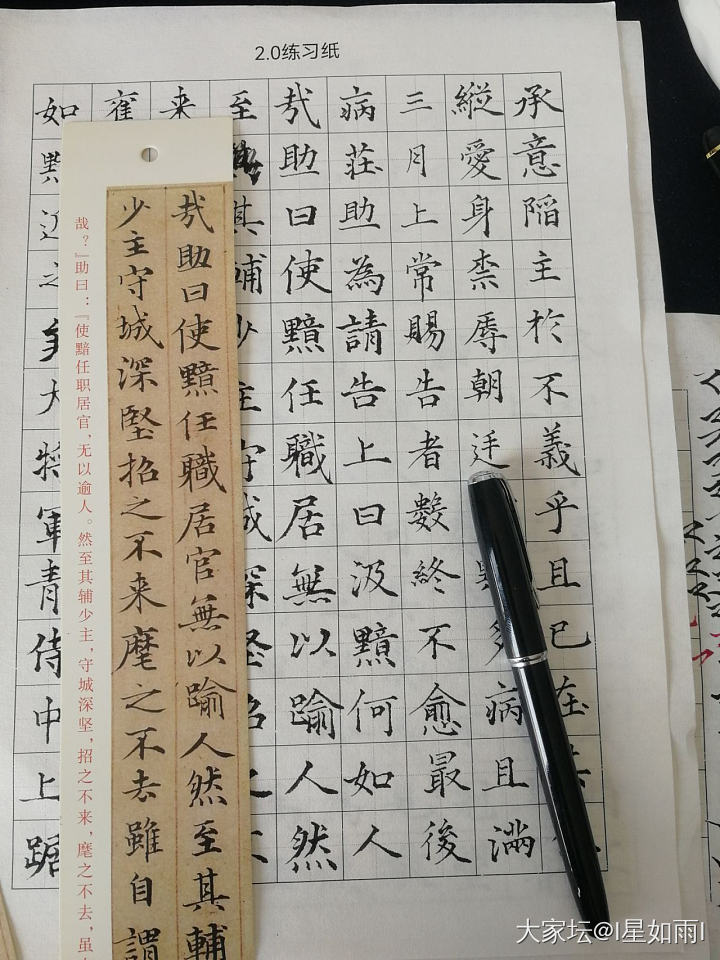 2.0练习纸
承意陷主於不義乎且已在
縱愛身柰辱朝廷多病且滿
三月上常賜告者數終不愈最後
病莊助為請告上曰汲黯何如人
哉助曰使黯任職居無以踰人然
至其輔少主守城深堅招之不
来
如黯近之大将軍青侍中上踞
哉助曰使黯任職居官無以踰人然至其輔
少主守城深堅招之不来麾之不去雖自謂
哉？』助曰：『使黯任职居官，无以逾人。然至其辅少主，守城深坚，招之不来，麾之不去，虽
大家坛@l星如雨l